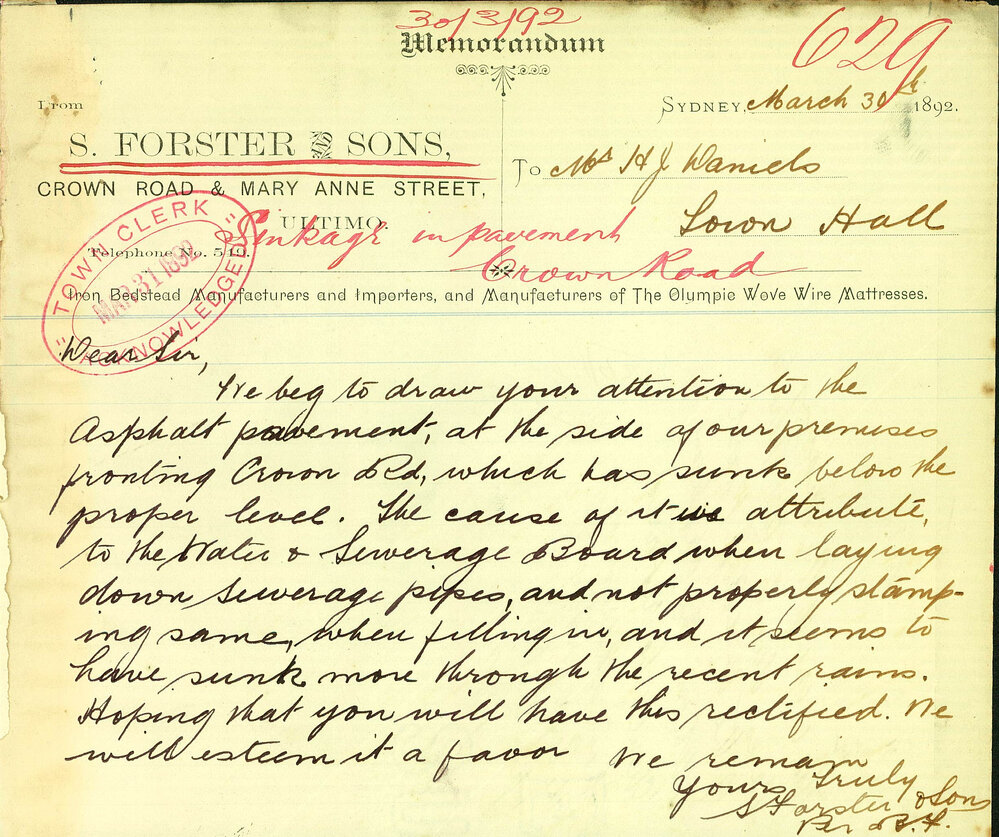 30/3/92
629
Memorandum
From
SYDNEY, March 30th 1892.
S. FORSTER AND SONS,
CROWN ROAD & MARY ANNE STREET,
ULTIMO
Telephone No. 519.
To Mr H J Daniels
Town Hall
Sinkage in pavement
Crown Road
TOWN CLERK
MAR 31 1892
ACKNOWLEDGED
Iron Bedstead Manufacturers and Importers, and Manufacturers of The Olympic Wove Wire Mattresses.
Dear Sir,
We beg to draw your attention to the
Asphalt pavement, at the side of our premises
fronting Crown Rd, which has sunk below the
proper level. The cause of it we attribute,
to the Water & Sewerage Board when laying
down sewerage pipes, and not properly stamp-
ing same, when filling in, and it seems to
have sunk more through the recent rains.
Hoping that you will have this rectified. We
will esteem it a favor We remain
Yours Truly
S Forster & Sons
Per